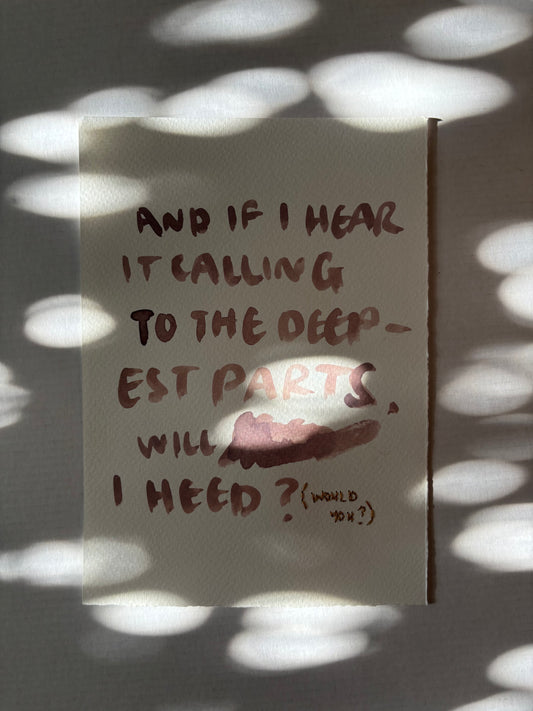 AND IF I HEAR
IT CALLING
TO THE DEEP-
EST PARTS,
WILL
I HEED? (WOULD
YOU?)